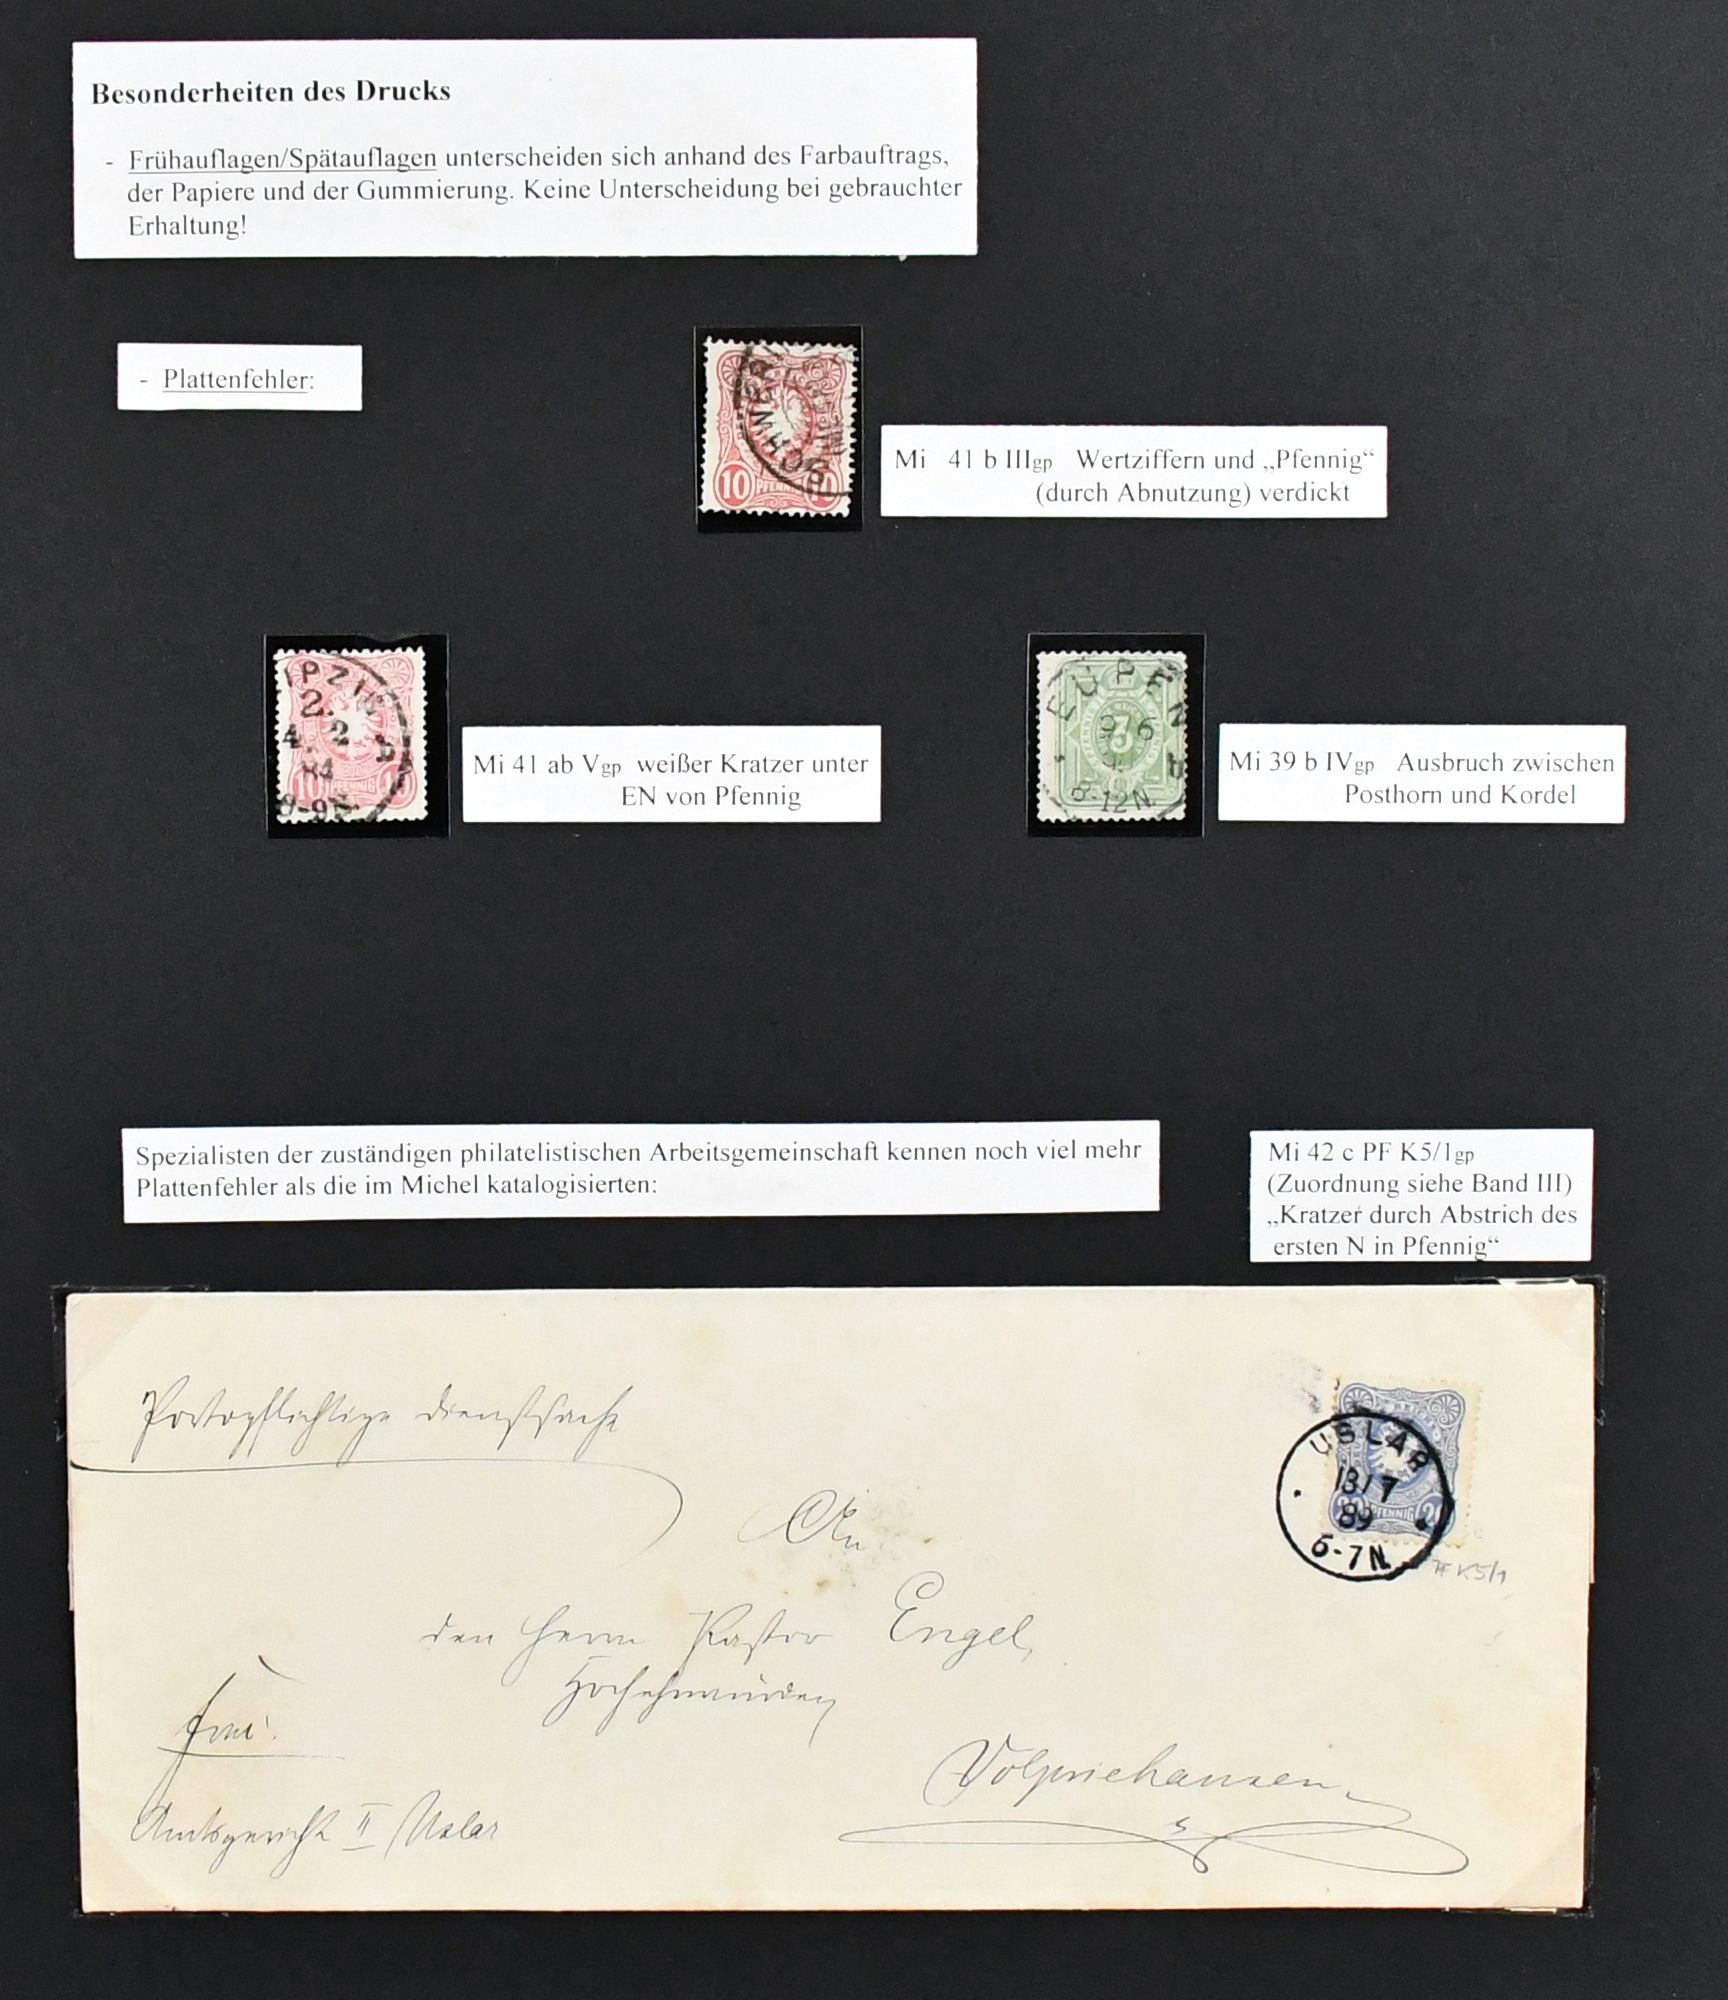 Besonderheiten des Drucks
- Frühauflagen/Spätauflagen unterscheiden sich anhand des Farbauftrags,
der Papiere und der Gummierung. Keine Unterscheidung bei gebrauchter
Erhaltung!
- Plattenfehler:
10 PFENNIG 10
Mi 41 b IIIgp Wertziffern und „Pfennig“
(durch Abnutzung) verdickt
IPZIG
2.
4. 2 b
84
8-9N.
10 PFENNIG 10
Mi 41 ab Vgp weißer Kratzer unter
EN von Pfennig
EUPEN
9 6
b
8-12N.
3
Mi 39 b IVgp Ausbruch zwischen
Posthorn und Kordel
Spezialisten der zuständigen philatelistischen Arbeitsgemeinschaft kennen noch viel mehr
Plattenfehler als die im Michel katalogisierten:
Mi 42 c PF K5/1gp
(Zuordnung siehe Band III)
„Kratzer durch Abstrich des
ersten N in Pfennig“
Portopflichtige Dienstsache
USLAR
13/7
89
6-7N.
20 PFENNIG 20
K5/1
An
den Herrn Pastor Engel,
Hochehrwürden
Volpriehausen
Amtsgericht II Uslar